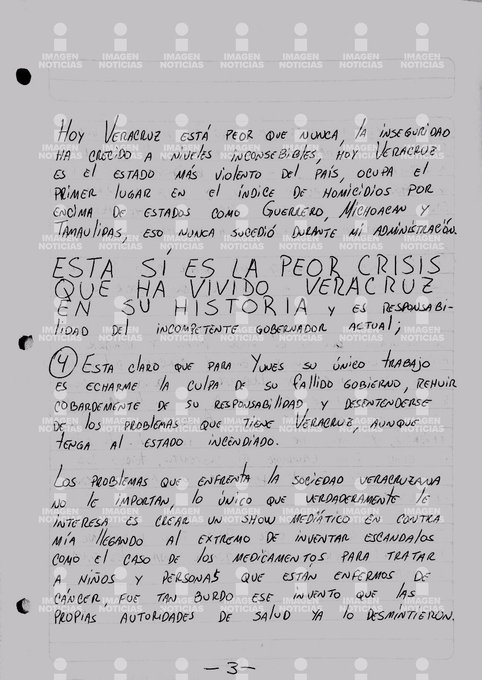 HOY VERACRUZ ESTÁ PEOR QUE NUNCA, LA INSEGURIDAD
HA CRECIDO A NIVELES INCONSEBIBLES, HOY VERACRUZ
ES EL ESTADO MÁS VIOLENTO DEL PAÍS, OCUPA EL
PRIMER LUGAR EN EL ÍNDICE DE HOMICIDIOS POR
ENCIMA DE ESTADOS COMO GUERRERO, MICHOACAN Y
TAMAULIPAS, ESO NUNCA SUCEDIÓ DURANTE MI ADMINISTRACIÓN.
ESTA SÍ ES LA PEOR CRISIS
QUE HA VIVIDO VERACRUZ
EN SU HISTORIA Y ES RESPONSABI-
LIDAD DEL INCOMPETENTE GOBERNADOR ACTUAL;
4 ESTA CLARO QUE PARA YUNES SU ÚNICO TRABAJO
ES ECHARME LA CULPA DE SU FALLIDO GOBIERNO, REHUIR
COBARDEMENTE DE SU RESPONSABILIDAD Y DESENTENDERSE
DE LOS PROBLEMAS QUE TIENE VERACRUZ, AUNQUE
TENGA AL ESTADO INCENDIADO.
LOS PROBLEMAS QUE ENFRENTA LA SOCIEDAD VERACRUZANA
NO LE IMPORTAN, LO ÚNICO QUE VERDADERAMENTE LE
INTERESA ES CREAR UN SHOW MEDIÁTICO EN CONTRA
MÍA LLEGANDO AL EXTREMO DE INVENTAR ESCANDALOS
COMO EL CASO DE LOS MEDICAMENTOS PARA TRATAR
A NIÑOS Y PERSONAS QUE ESTÁN ENFERMOS DE
CÁNCER, FUE TAN BURDO ESE INVENTO QUE LAS
PROPIAS AUTORIDADES DE SALUD YA LO DESMINTIERON.
-3-
IMAGEN
NOTICIAS